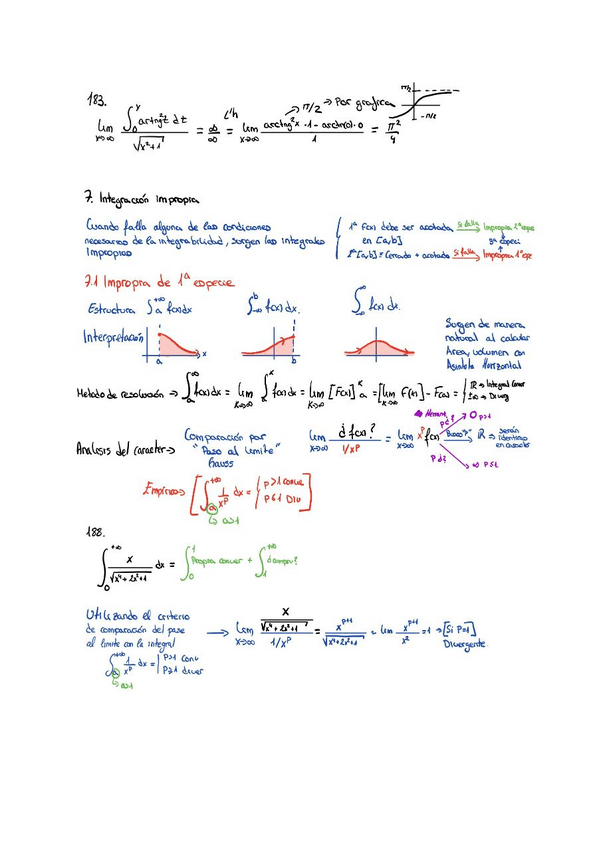 183.
lim x→∞ ∫₀^y arctng²t dt / √(x²+1) = ∞/∞ = L'h lim x→∞ arctng²x · 1 - arctn(0) · 0 / 1 = π²/4
→ π/2 → Por grafica
π/2
-π/2
7. Integración Impropia
Cuando falla alguna de las condiciones
necesarias de la integrabilidad, surgen las integrales
Impropias
1ª F(x) debe ser acotada Si falla → Impropia 2ª espe
en [a,b]
3ª especi
2ª [a,b] = Cerrado + acotado Si falla → Impropia 1ª espe
7.1 Impropia de 1ª especie
Estructura ∫_a^∞ f(x)dx
∫_-∞^b f(x)dx.
∫_-∞^∞ f(x)dx.
Interpretación
a x
b
Surgen de manera
natural al calcular
Area, volumen con
Asintota Horizontal
Metodo de resolución → ∫_a^+∞ f(x)dx = lim K→∞ ∫_a^K f(x)dx = lim K→∞ [F(x)]_a^K = [lim K→∞ F(K)] - F(a) = { ℝ → Integral Conver
±∞ → Diverg
Analisis del caracter →
Comparación por
"Paso al limite"
Gauss
lim x→∞ ¿f(x)? / 1/x^p = lim x→∞ x^p f(x) Busco "p" → ℝ → serán
identicas
en caracter
P¿?
0 p>1
P¿?
∞ P≤1
Empírico → [∫_a^+∞ 1/x^p dx = { P>1 conve
P≤1 Div ]
↳ a≥1
188.
∫₀^+∞ x / √(x⁴+2x²+1) dx = ∫₀^1 Propia conver + ∫₁^+∞ ¿impro?
Utilizando el criterio
de comparación del pase
al limite con la integral
∫_a^+∞ 1/x^p dx = | P>1 Conv
P≥1 diver
↳ a≥1
→ lim x→∞ x/√(x⁴+2x²+1) / 1/x^p = x^(p+1) / √(x⁴+2x²+1) = lim x^(p+1) / x² = 1 → [Si P=1]
Divergente.